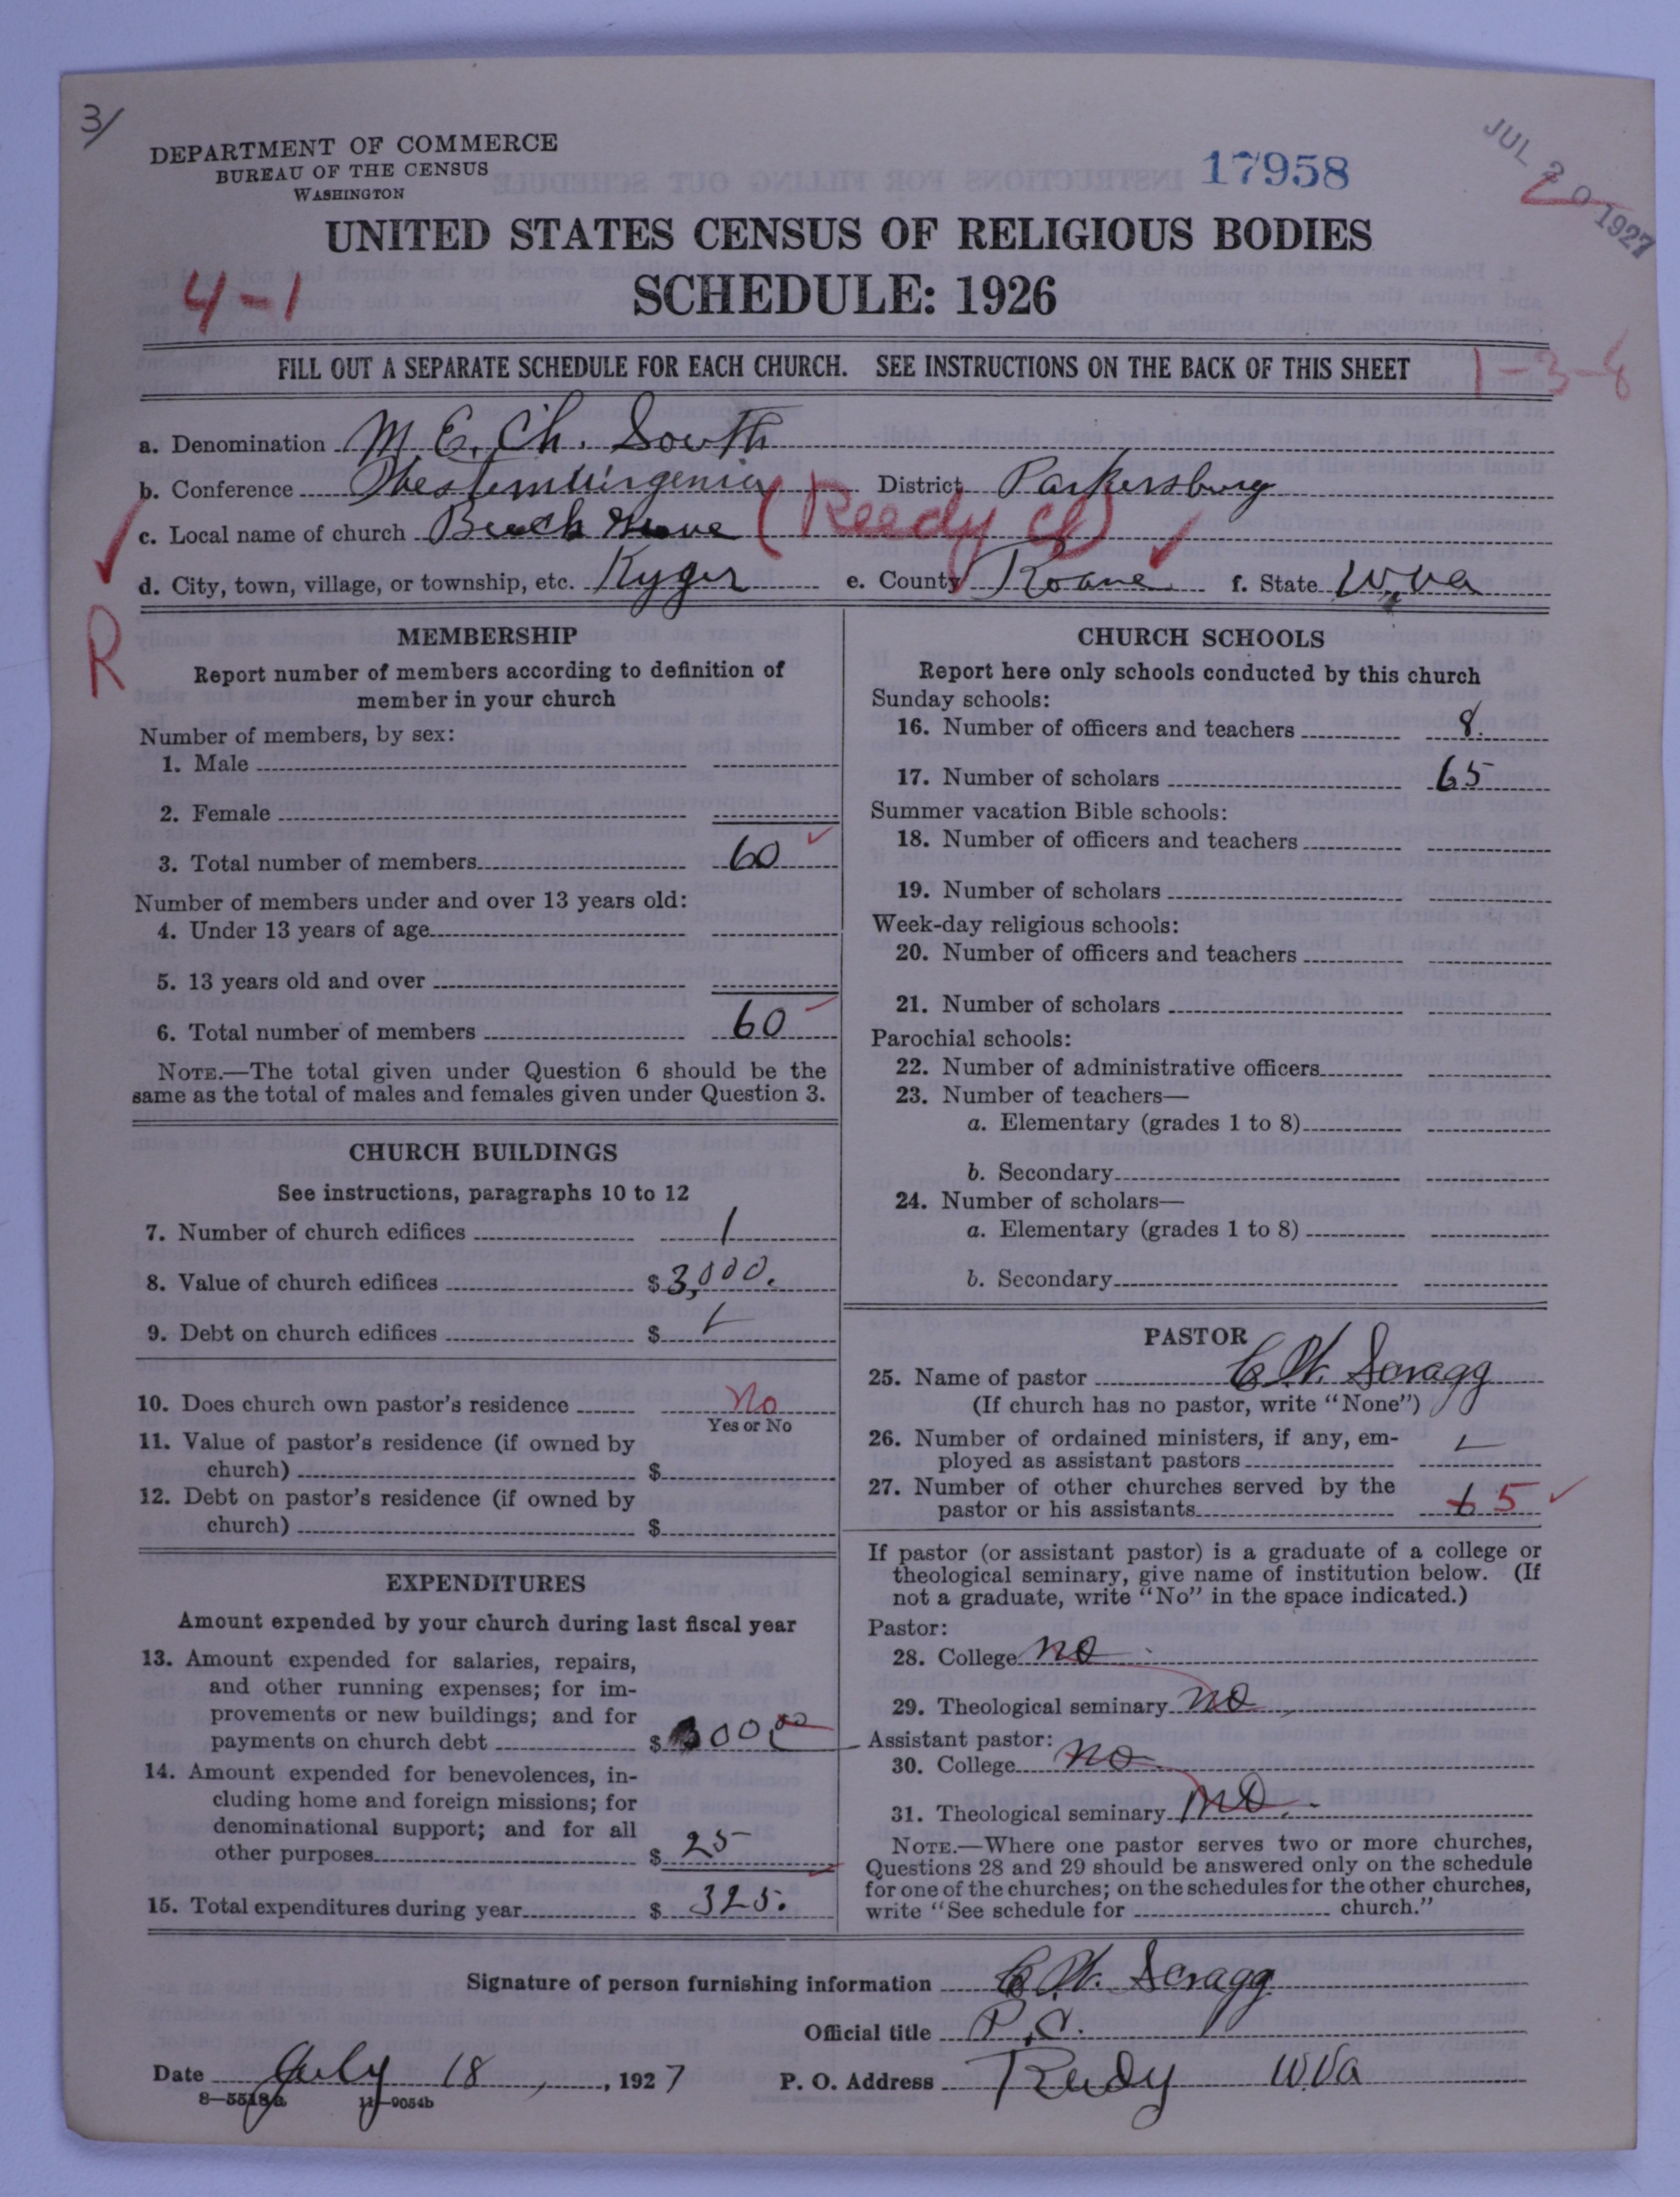 3/
DEPARTMENT OF COMMERCE
BUREAU OF THE CENSUS
WASHINGTON
17958
JUL 20 1927
UNITED STATES CENSUS OF RELIGIOUS BODIES
SCHEDULE: 1926
4-1
FILL OUT A SEPARATE SCHEDULE FOR EACH CHURCH. SEE INSTRUCTIONS ON THE BACK OF THIS SHEET
1-3-
a. Denomination M E. Ch. South
b. Conference Western Virgenia District Parkersburg
c. Local name of church Beech Grove (Reedy Ct)
d. City, town, village, or township, etc. Kyger e. County Roane f. State W.Va
R
MEMBERSHIP
Report number of members according to definition of
member in your church
Number of members, by sex:
1. Male
2. Female
3. Total number of members 60
Number of members under and over 13 years old:
4. Under 13 years of age
5. 13 years old and over
6. Total number of members 60
NOTE.—The total given under Question 6 should be the
same as the total of males and females given under Question 3.
CHURCH BUILDINGS
See instructions, paragraphs 10 to 12
7. Number of church edifices 1
8. Value of church edifices $3,000.
9. Debt on church edifices $
10. Does church own pastor's residence No
Yes or No
11. Value of pastor's residence (if owned by
church) $
12. Debt on pastor's residence (if owned by
church) $
EXPENDITURES
Amount expended by your church during last fiscal year
13. Amount expended for salaries, repairs,
and other running expenses; for im-
provements or new buildings; and for
payments on church debt $300 00
14. Amount expended for benevolences, in-
cluding home and foreign missions; for
denominational support; and for all
other purposes $25
15. Total expenditures during year $325.
CHURCH SCHOOLS
Report here only schools conducted by this church
Sunday schools:
16. Number of officers and teachers 8.
17. Number of scholars 65
Summer vacation Bible schools:
18. Number of officers and teachers
19. Number of scholars
Week-day religious schools:
20. Number of officers and teachers
21. Number of scholars
Parochial schools:
22. Number of administrative officers
23. Number of teachers—
a. Elementary (grades 1 to 8)
b. Secondary
24. Number of scholars—
a. Elementary (grades 1 to 8)
b. Secondary
PASTOR
25. Name of pastor C. W. Scragg
(If church has no pastor, write "None")
26. Number of ordained ministers, if any, em-
ployed as assistant pastors
27. Number of other churches served by the
pastor or his assistants 6 5
If pastor (or assistant pastor) is a graduate of a college or
theological seminary, give name of institution below. (If
not a graduate, write "No" in the space indicated.)
Pastor:
28. College no
29. Theological seminary no
Assistant pastor:
30. College no
31. Theological seminary no.
NOTE.—Where one pastor serves two or more churches,
Questions 28 and 29 should be answered only on the schedule
for one of the churches; on the schedules for the other churches,
write "See schedule for church."
Signature of person furnishing information C. W. Scragg
Official title P.C.
Date July 18, 1927 P. O. Address Reedy W.Va
8—5518a 11—9054b